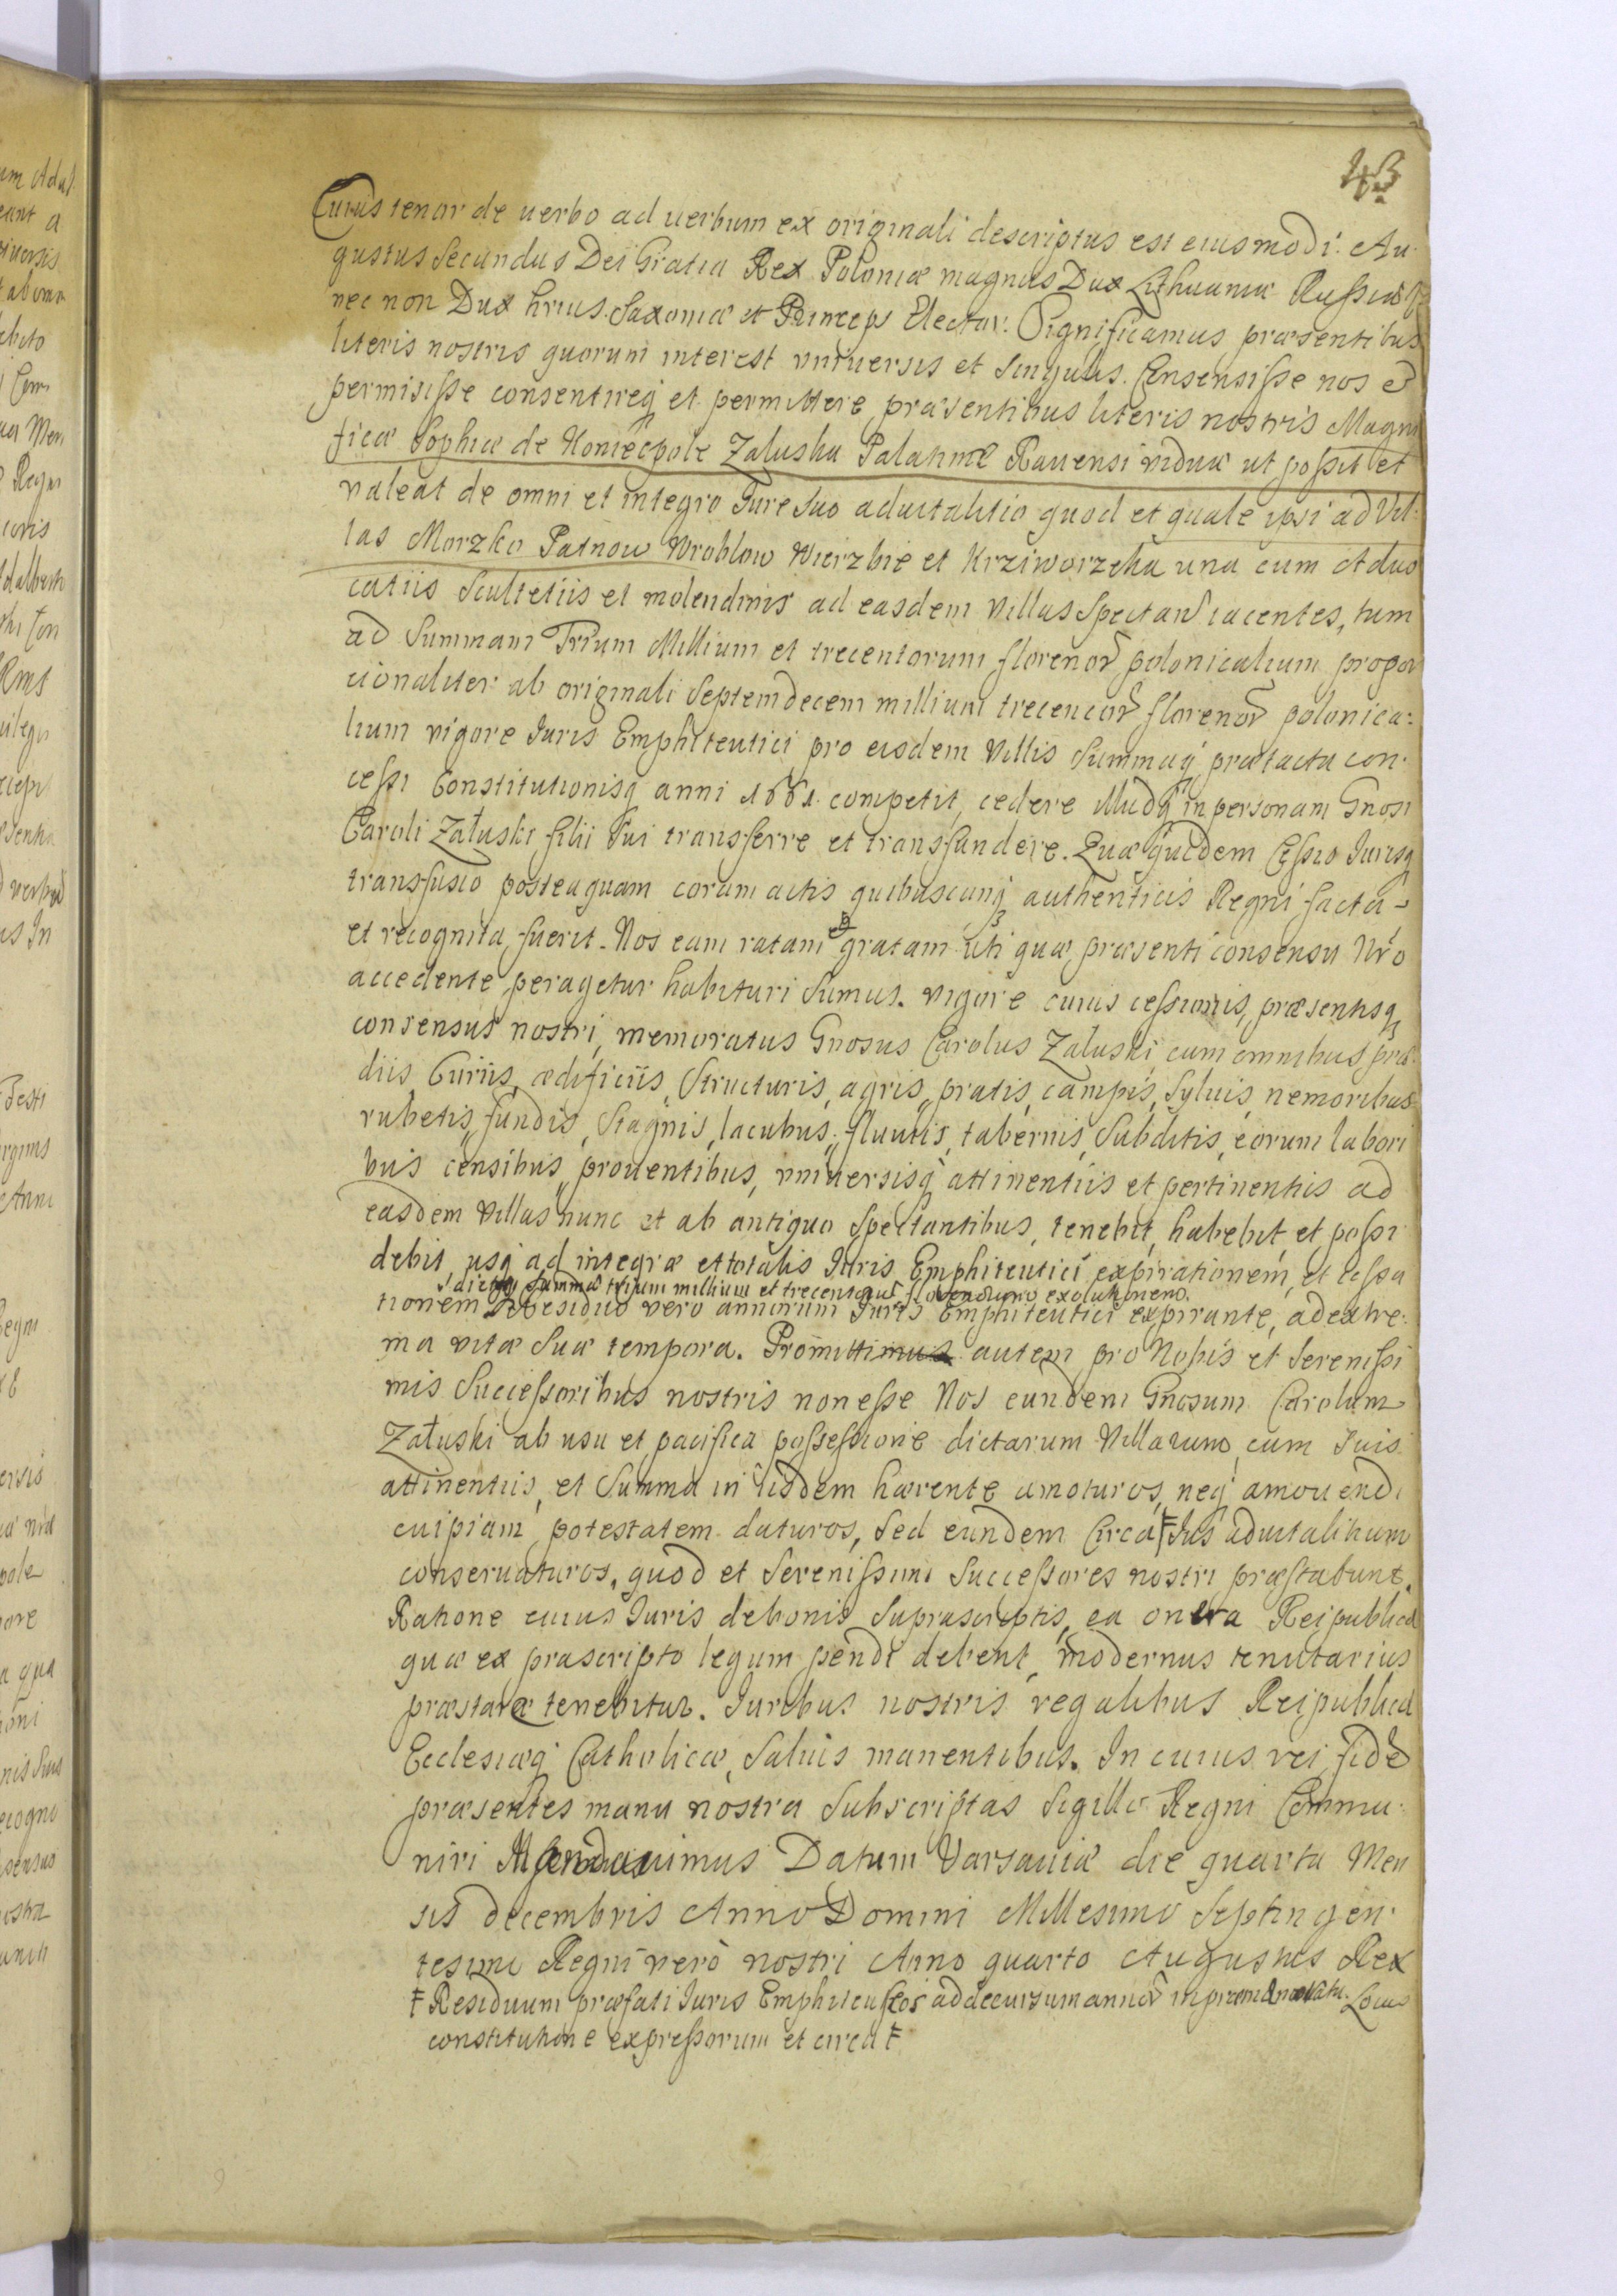 43
Cuius tenor de uerbo ad uerbum ex originali descriptus est eiusmodi: Au-
gustus Secundus Dei Gratia Rex Poloniæ magnus Dux Lithuaniæ Russiæ
nec non Dux hrius. Saxoniæ et Princeps Elector. Significamus præsentibus
literis nostris quorum interest vniuersis et Singulis. Consensisse nos et
permisisse consentireq; et permittere præsentibus literis nostris Magni
ficæ Sophiæ de Koniecpole Zaluska Palatinæ Rauensi viduæ ut possit et
valeat de omni et integro Jure Suo aduitalitio quod et quale ipsi ad Vil-
las Morzko Patnow Wroblow Wierzbie et Krziworzeka una cum Aduo
catiis Scultetiis et molendinis ad easdem Villas Spectan iacentes, tum
ad Summam Trium Millium et trecentorum florenor polonicalium propor
cionaliter ab originali Septemdecem millium trecentor florenor polonica:
lium vigore Juris Emphiteutici pro eisdem Villis Summaq; prætacta con-
cessi Constitutionisq anni 1661. competit, cedere illudq; in personam Gnosi
Caroli Załuski filii Sui transferre et transfundere. Quæ quidem Cessio Jurisq
transfusio posteaquam coram actis quibuscunq; authenticis Regni facta
et recognita fuerit. Nos eam ratam et gratam uti quæ præsenti consensu Nro
accedente peragetur habituri Sumus. vigore cuius cessionis, præsentisq
consensus nostri, memoratus Gnosus Carolus Zaluski, cum omnibus præ-
diis Curiis, ædificiis, Structuris, agris, pratis, campis, Syluis, nemoribus
rubetis, fundis, Stagnis, lacubus, fluuiis, tabernis, Subditis, eorum labori
bus censibus, prouentibus, vniuersisq; attinentiis et pertinentiis ad
easdem Villas nunc et ab antiquo Spectantibus, tenebit, habebit, et possi
debit, usq; ad integræ et totalis Juris Emphiteutici expirationem, et cessa
dictæ Summæ trium millium et trecentorum florenorum exolutionem.
tionem Residuo vero annorum Juris Emphiteutici expirante, ad extre-
ma vitæ Suæ tempora. Promittimus autem pro Nobis et Serenissi
mis Successoribus nostris non esse Nos eundem Gnosum Carolum
Załuski ab usu et pacifica possessione dictarum Villarum, cum Suis
attinentiis, et Summa in iisdem hærente amoturos, neq; amouendi
cuipiam potestatem daturos, Sed eundem Circa Ŧ Jus aduitalitium
conseruaturos, quod et Serenissimi Successores nostri præstabunt.
Ratione cuius Juris de bonis Suprascriptis, ea onera Reipublicæ
quæ ex præscripto legum pendi debent, modernus tenutarius
præstare tenebitur. Juribus nostris regalibus Reipublicæ
Ecclesiæq; Catholicæ, Saluis manentibus. In cuius rei fide
præsentes manu nostra Subscriptas Sigillo Regni Commu-
niri Mandauimus Datum Varsauiæ die quarta Men
sis decembris Anno Domini Millesimo Septingen-
tesimo Regni verò nostri Anno quarto Augustus Rex
Ŧ Residuum præfati Juris Emphiteu ad decursum annor in præmemorata
constitutione expressorum et circa Ŧ